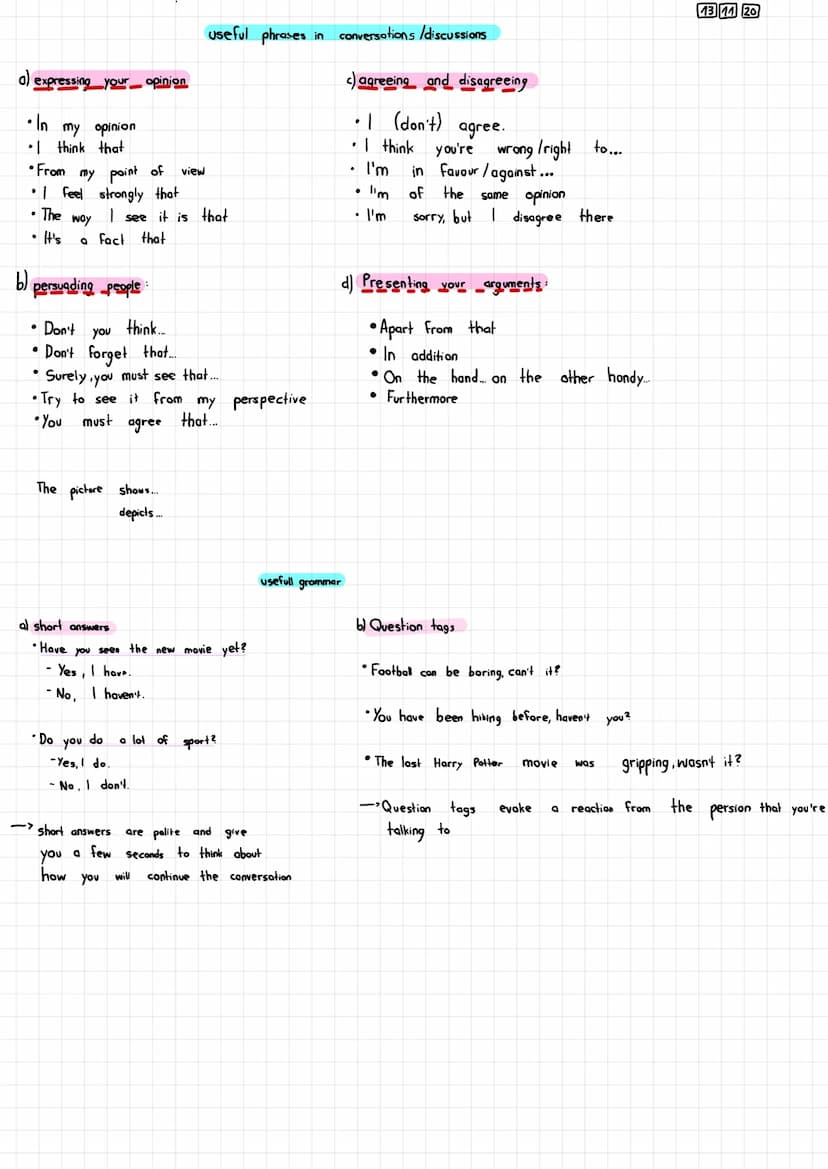 13 11 20
useful phrases in conversations/discussions
a) expressing your opinion
• In my opinion
• I think that
• From my point of view
• I feel strongly that
• The way I see it is that
• It's a fact that
b) persuading people:
• Don't you think...
• Don't forget that...
• Surely, you must see that...
• Try to see it from my perspective
• You must agree that...
The picture shows...
depicts...
c) agreeing and disagreeing
• I (don't) agree.
• I think you're wrong/right to...
• I'm in favour/against...
• I'm of the same opinion
• I'm sorry, but I disagree there
d) Presenting your arguments:
• Apart from that
• In addition
• On the hand... on the other handy...
• Furthermore
usefull grammar
a) short answers
• Have you seen the new movie yet?
- Yes, I have.
- No, I haven't.
• Do you do a lot of sport?
- Yes, I do.
- No, I don't.
→ short answers are polite and give
you a few seconds to think about
how you will continue the conversation
b) Question tags
• Football can be boring, can't it?
• You have been hiking before, haven't you?
• The last Harry Potter movie was gripping, wasn't it?
→ Question tags evoke a reaction from the persion that you're
talking to